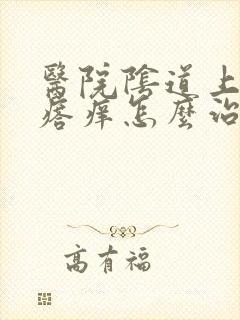 醫院陰道上
瘩痒怎麼治
高有福